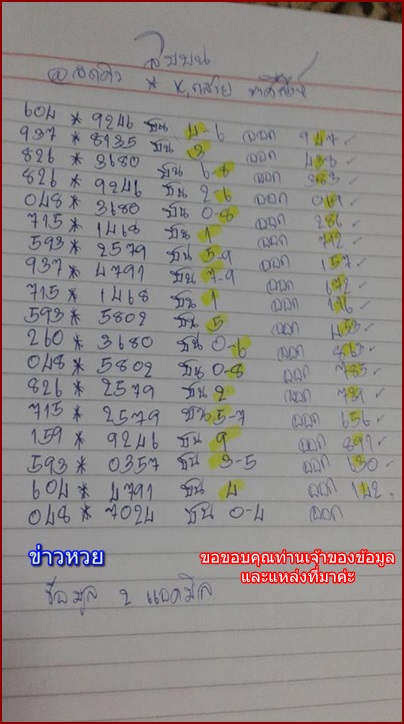 สูบบน
604 * 9246 ชน 4-6 ออก 947 ✓
937 * 8135 ชน 3 ออก 438 ✓
826 * 3680 ชน 6-8 ออก 383 ✓
826 * 9246 ชน 2-6 ออก
048 * 3680 ชน 0-8 ออก 286 ✓
715 * 1468 ชน 1 ออก 712 ✓
593 * 2579 ชน 5-9 ออก 157 ✓
937 * 4791 ชน 7-9 ออก 172 ✓
715 * 1468 ชน 1 ออก 116 ✓
593 * 5802 ชน 5 ออก 453 ✓
260 * 3680 ชน 0-6 ออก
048 * 5802 ชน 0-8 ออก 785 ✓
826 * 2579 ชน 2 ออก
715 * 2579 ชน 5-7 ออก 656 ✓
159 * 9246 ชน 9 ออก 891 ✓
593 * 0357 ชน 3-5 ออก 630 ✓
604 * 4791 ชน 4 ออก 142 ✓
048 * 7024 ชน 0-4 ออก
ข่าวหวย
ขอขอบคุณท่านเจ้าของข้อมูล
และแหล่งที่มาค่ะ
ข้อมูล